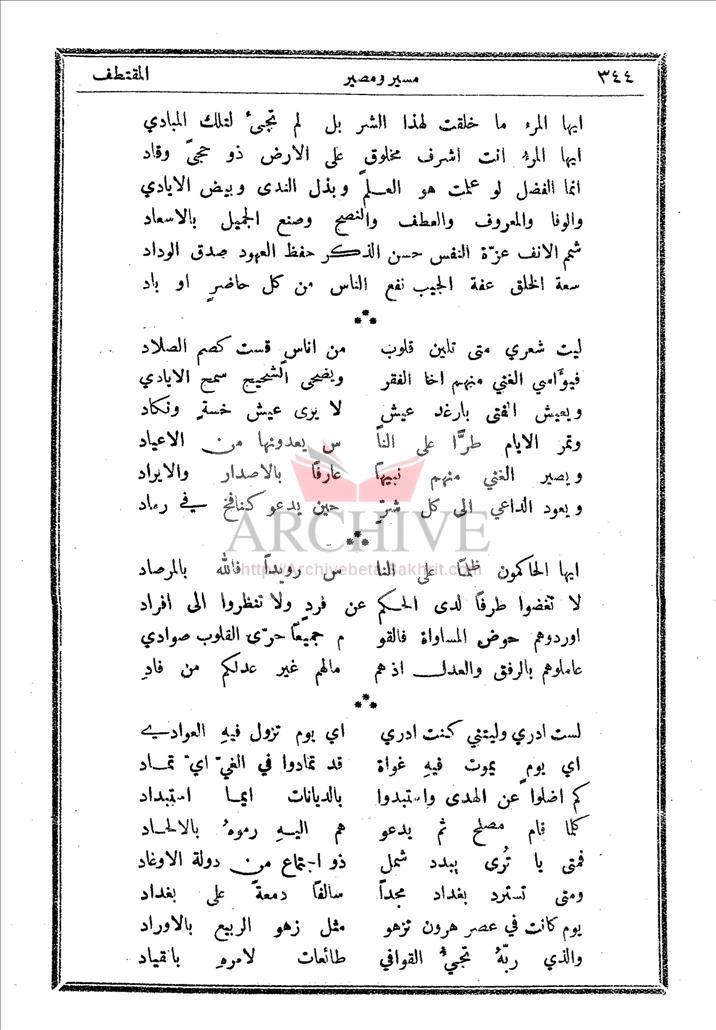 ٣٤٤ مسير ومصير المقتطف
ايها المرء ما خلقت لهذا الشر بل لم تجيء لتلك المبادي
ايها المرء انت اشرف مخلوق على الارض ذو حجىً وقاد
انما الفضل لو علمت هو العلم وبذل الندى وبيض الايادي
والوفا والمعروف والعطف والنصح وصنع الجميل بالاسعاد
شمم الانف عزّة النفس حسن الذكر حفظ العهود صدق الوداد
سعة الخلق عفة الجيب نفع الناس من كل حاضرٍ او باد
ليت شعري متى تلين قلوب من اناسٍ قست كصم الصلاد
فيؤاسي الغني منهم اخا الفقر ويضحي الشحيح سمح الايادي
ويعيش الفتى بارغد عيش لا يرى عيش خسةٍ ونكاد
وتمر الايام طرًّا على النا س يعدونها من الاعياد
ويصير الغني منهم نبيهاً عارفاً بالاصدار والايراد
ويعود الداعي الى كل شرٍّ حين يدعو كنافخ في رماد
ARCHIVE
http://Archivebeta.Sakhrit.com
ايها الحاكمون ظلماً على النا س رويداً فالله بالمرصاد
لا تغضوا طرفاً لدى الحكم عن فردٍ ولا تنظروا الى افراد
اوردوهم حوض المساواة فالقو م جميعاً حرّى القلوب صوادي
عاملوهم بالرفق والعدل اذ هم مالهم غير عدلكم من فادِ
لست ادري وليتني كنت ادري اي يوم تزول فيهِ العوادي
اي يومٍ يموت فيهِ غواة قد تمادوا في الغيّ ايّ تماد
كم اضلوا عن الهدى واستبدوا بالديانات ايما استبداد
كلما قام مصلح ثم يدعو هم اليهِ رموهُ بالالحاد
فمتى يا تُرى يبدد شمل ذو اجتماع من دولة الاوغاد
ومتى تسترد بغداد مجداً سالفاً دمعةً على بغداد
يوم كانت في عصر هرون تزهو مثل زهو الربيع بالاوراد
والذي ربّهُ تجيءُ القوافي طائعات لامرهِ بانقياد